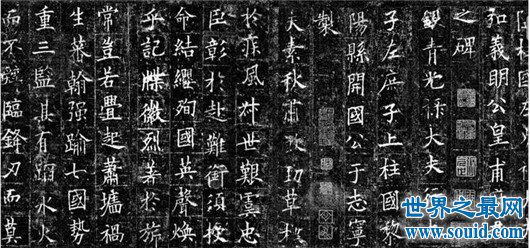 弘義明公皇甫府
之碑
銀青光祿大夫行
子左庶子上柱國黎
陽縣開國公于志寧
製
夫素秋肅煞勁草標
於疾風叔世艱虞忠
臣彰於赴難銜須授
命結纓殉國英聲煥
乎記牒徽烈著於旂
常豈若釁起蕭墻禍
生蕃翰強踰七國勢
重三監其有蹈水火
而不辭臨鋒刃而莫
世界之最网
www.souid.com